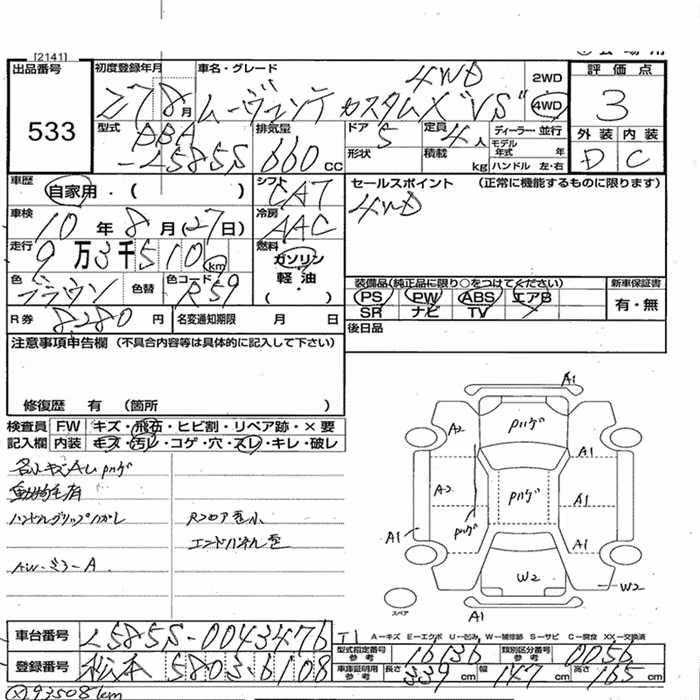 [2141]
出品番号
533
初度登録年月
27 8月
車名・グレード
ムーヴコンテ カスタムX "VS" 4WD
2WD
4WD
評価点
3
外装 内装
D C
型式
DBA
-L585S
排気量
660 CC
ドア 5
形状
定員 4人
積載 kg
ディーラー・並行
モデル年式 年
ハンドル 左・右
車歴
自家用・( )
シフト
CAT
セールスポイント (正常に機能するものに限ります)
4WD
車検
10年8月(27日)
冷房
AAC
走行
9万3千510km
燃料
ガソリン
軽油
(・)
色
ブラウン
色替
色コード
R59
装備品(純正品に限り○をつけてください)
PS PW ABS エアB
SR ナビ TV
新車保証書
有・無
R券
8280円
名変通知期限 月 日
後日品
注意事項申告欄 (不具合内容等は具体的に記入して下さい)
修復歴 有 (箇所 )
検査員 FW キズ・飛石・ヒビ割・リペア跡・×要
記入欄 内装 キズ・汚レ・コゲ・穴・スレ・キレ・破レ
動物毛有
ハンドルグリップハガレ
AW-キラ-A
Rフロア歪小
エンドパネル歪
A1
A2
A2
A1
A1
A1
A1
W2
W2
A1
スペア
A-キズ E-エクボ U-凹み W-補修跡 S-サビ C-腐食 XX-交換済
車台番号
L585S-0043476
型式指定番号 参考
16136
類別区分番号 参考
0056
登録番号
松本 580 3 6108
車庫証明用 参考
長さ 339 cm 幅 147 cm 高さ 165 cm
93508km